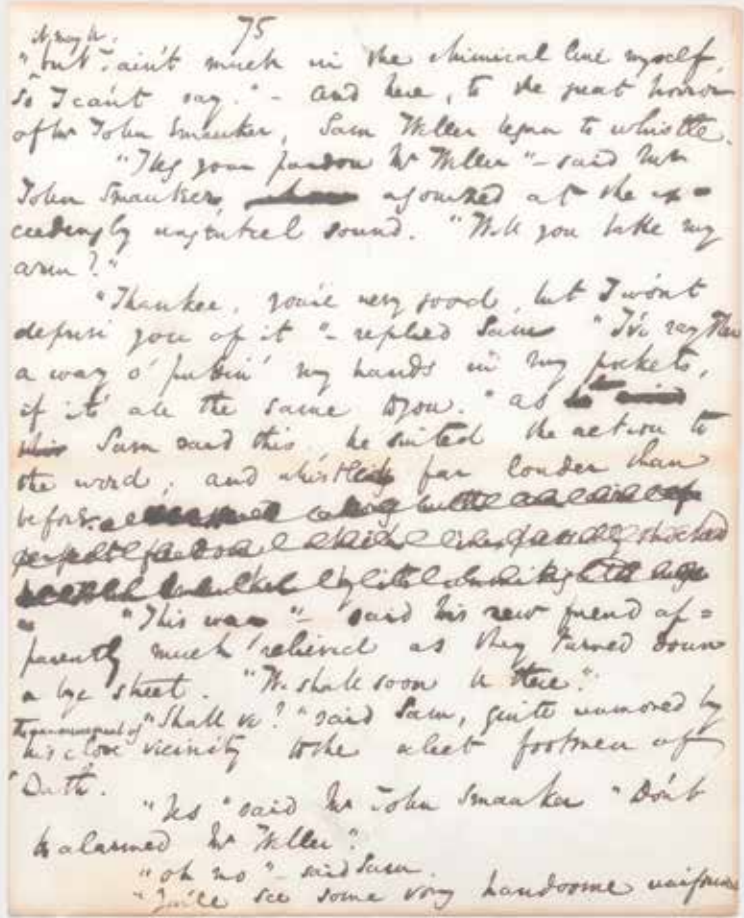 75
it may be.
"but I ain't much in the chimical line myself,
so I can't say." – And here, to the great horror
of Mr John Smauker, Sam Weller began to whistle.
"I beg your pardon Mr Weller" – said Mr
John Smauker, agonized at the ex=
ceedingly ungenteel sound. "Will you take my
arm?"
"Thankee, you're very good, but I won't
deprive you of it" – replied Sam "I've rayther
a way o' puttin' my hands in my pockets,
if it's all the same to you." as
Sam said this, he suited the action to
the word; and whistled far louder than
before.
"This way" – said his new friend ap=
parently much relieved as they turned down
a bye street. "We shall soon be there."
"Shall ve?" said Sam, quite unmoved by
the announcement of
his close vicinity to the select footmen of
Bath.
"Yes" said Mr John Smauker "Don't
be alarmed Mr Weller".
"oh no" – said Sam.
"You'll see some very handsome uniforms